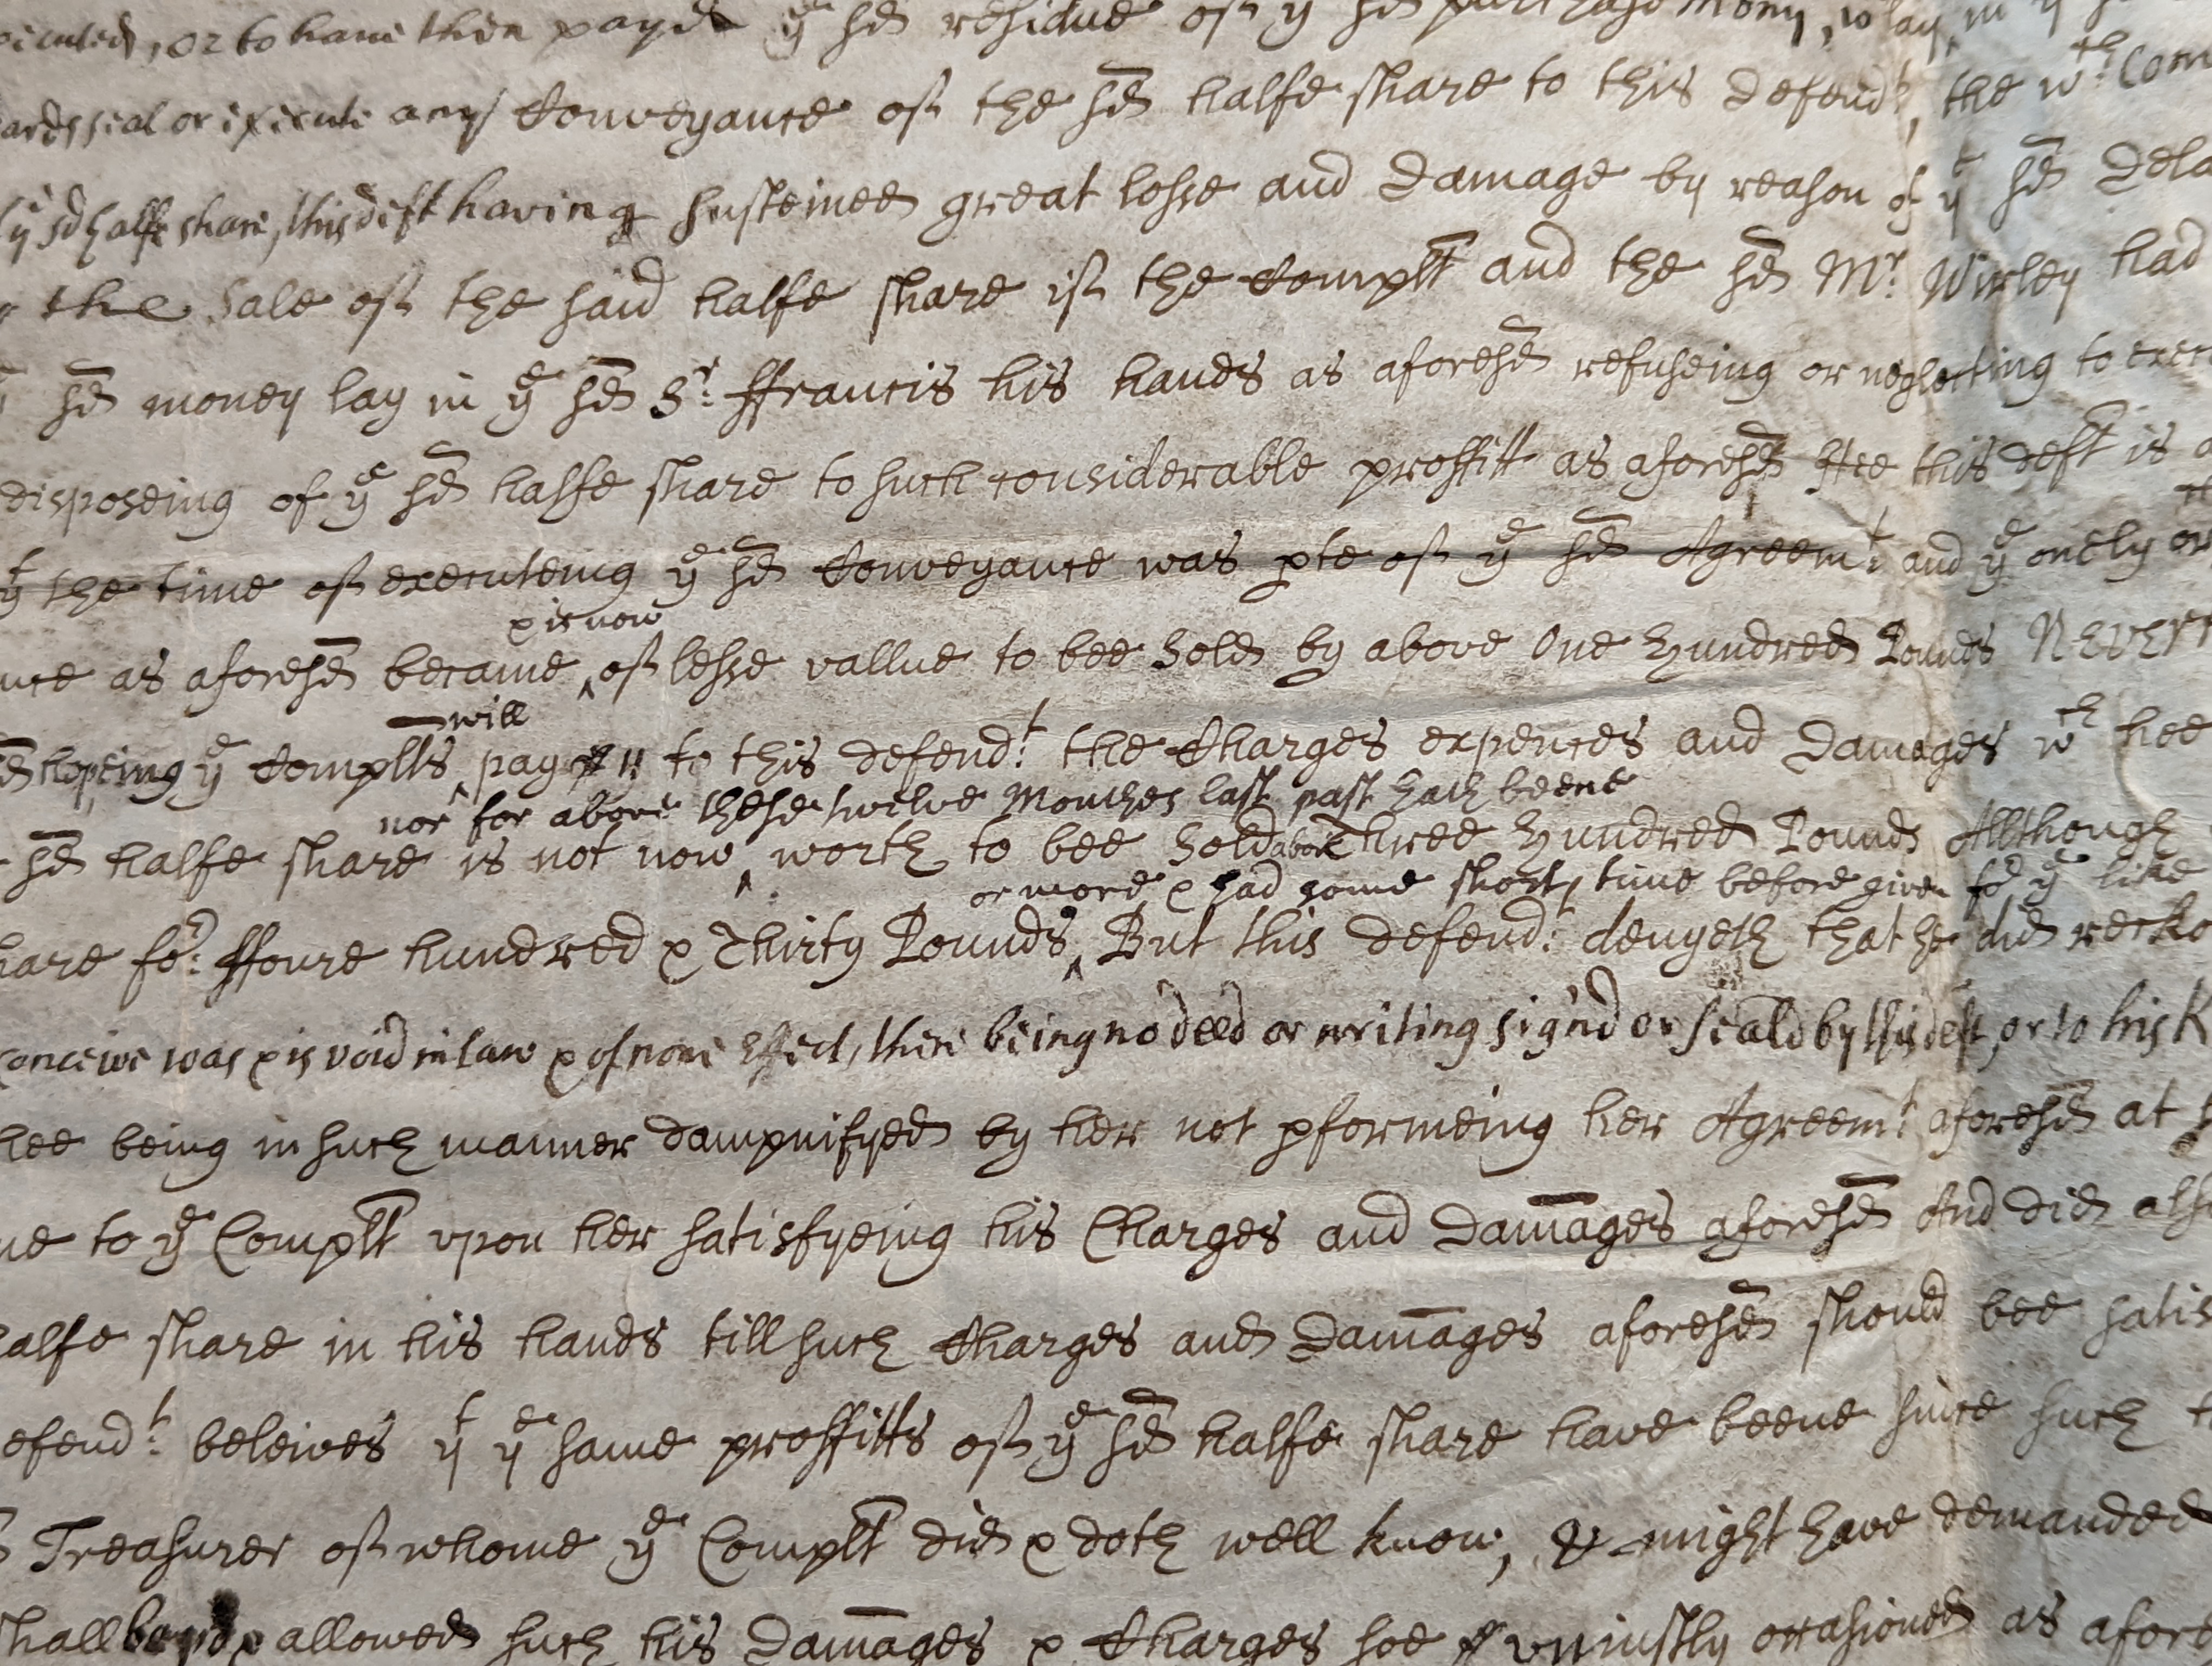 or to have then payd ye sd residue of ye sd purchase mony, to lay in ye
seal or execute any Conveyance of the sd halfe share to this defendt, the wch Com
ye sd halfe share, this deft having susteined great losse and Damage by reason of ye sd dela
the Sale of the said halfe share if the Complt and the sd Mr. Wirley had
sd money lay in ye sd Sr. ffrancis his hands as aforesd refuseing or neglecting to exec
disposeing of ye sd halfe share to such considerable proffitt as aforesd Hee this deft is
yt the time of executeing ye sd Conveyance was pte of ye sd Agreemt. and ye onely
& is now
nce as aforesd became ^ of lesse vallue to bee Sold by above One Hundred Pounds NEVER
will
hopeing ye Complts ^ pay to this defendt. the Charges expences and Damages wch hee
nor for above these twelve Monthes last past hath beene
sd halfe share is not now ^ worth to bee Sold above Three Hundred Pounds Allthough
or more & had some short time before given for ye like
hare for. ffoure hundred & Thirty Pounds ^ But this defendt. denyeth that he did recko
conceive was & is void in law & of none Effect, there being no deed or writing sign'd or seald by this deft, or to his k
hee being in such manner dampnifyed by her not pformeing her Agreemt. aforesd at
ne to ye Complt upon her satisfyeing his Charges and Damages aforesd And did also
halfe share in his hands till such Charges and Damages aforesd should bee satis
efendt. beleives yt ye same proffitts of ye sd halfe share have beene since such
Treasurer of whome ye Complt did & doth well know, & might have demanded
shall & allowed such his Damages & Charges soe unjustly occasioned as afore